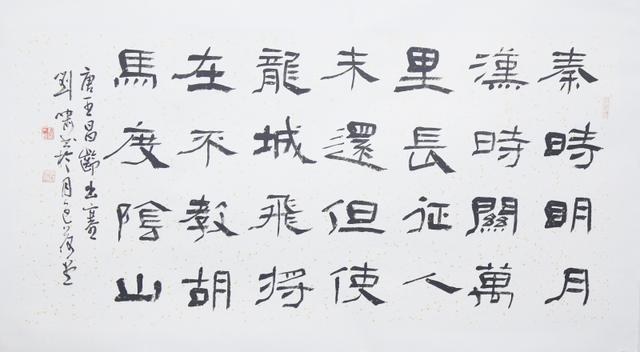 秦時明月
漢時關萬
里長征人
未還但使
龍城飛將
在不教胡
馬度陰山
唐王昌齡出塞
劉嘯月